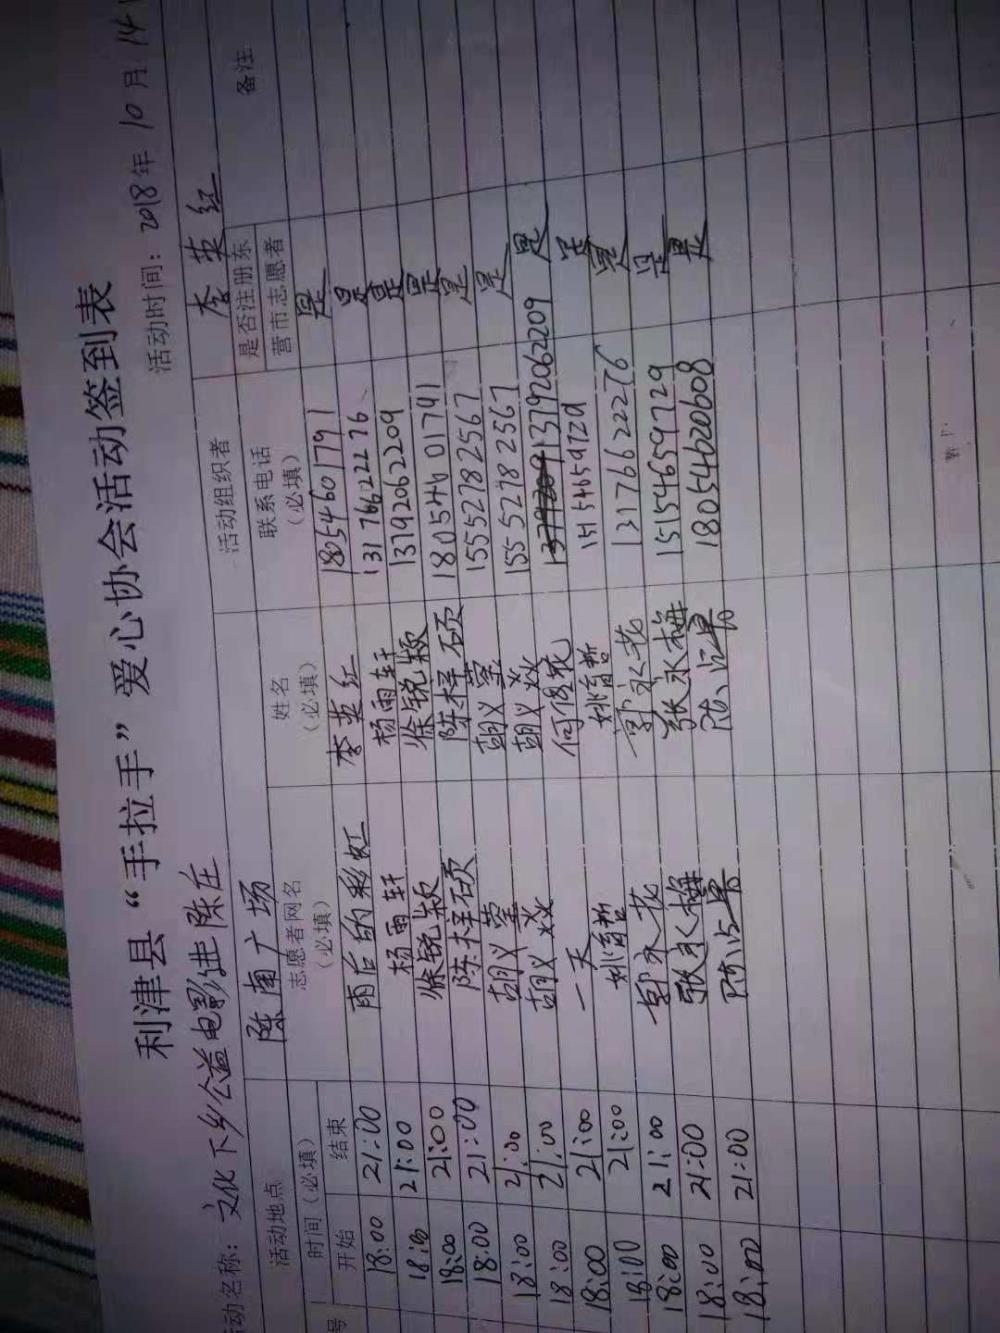 利津县“手拉手”爱心协会活动签到表
活动时间：2018年 10月 14
动名称：文化下乡公益电影进陈庄
活动地点 陈南广场 活动组织者 李英红
号 时间（必填） 志愿者网名（必填） 姓名（必填） 联系电话（必填） 是否注册东营市志愿者 备注
开始 结束
18:00 21:00 雨后的彩虹 李英红 是
18:00 21:00 杨雨轩 杨雨轩 13176622276 是
18:00 21:00 徐锐颖 徐锐颖 13792062209 是
18:00 21:00 陈梓硕 陈梓硕 18054601741 是
18:00 21:00 胡义莹 胡义莹 15552782567 是
18:00 21:00 胡义焱 胡义焱 15552782567 是
18:00 21:00 一天 13792062209 是
18:00 21:00 15154659729 是
18:00 21:00 郭永花 郭永花 13176622276 是
18:00 21:00 张永梅 张永梅 15154659729 是
18:00 21:00 18054620608 是